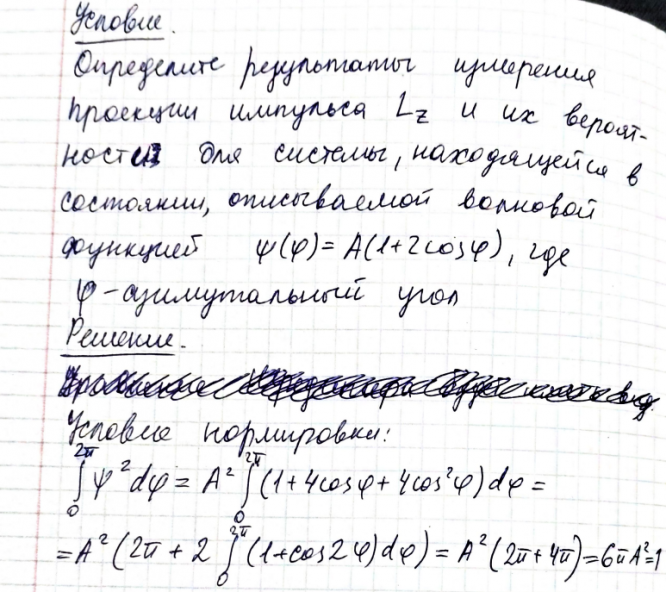 Условие.
Определите результаты измерения
проекции импульса L_z и их вероят-
ности для системы, находящейся в
состоянии, описываемой волновой
функцией ψ(φ)=A(1+2cosφ), где
φ-азимутальный угол
Решение.
Условие нормировки:
∫₀^{2π} ψ²dφ = A² ∫₀^{2π} (1+4cosφ+4cos²φ)dφ =
= A² (2π + 2 ∫₀^{2π} (1+cos2φ)dφ) = A² (2π+4π) = 6πA²=1